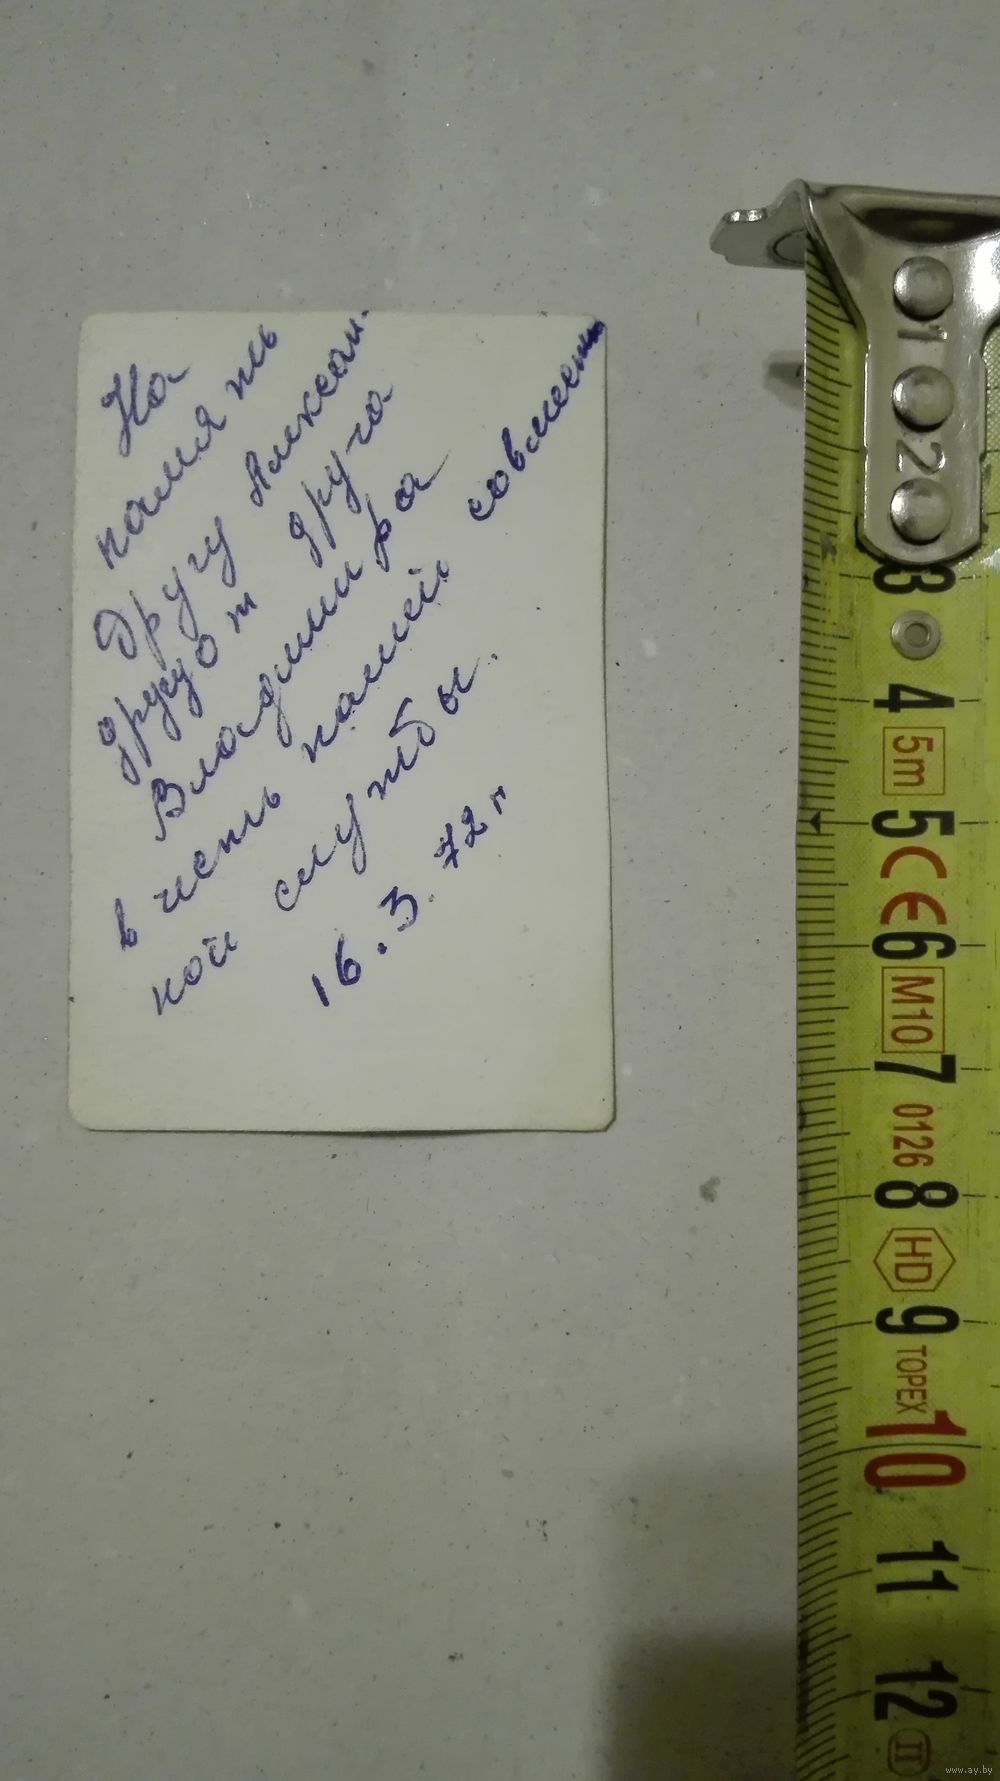 На
память
другу Алексан-
другу от друга
Владимира
в честь нашей совмест
ной службы.
16.3.72 г
1
2
3
4
5m
5
CE
6
M10
7
0126
8
HD
9
TOPEX
10
11
12
II
www.ay.by